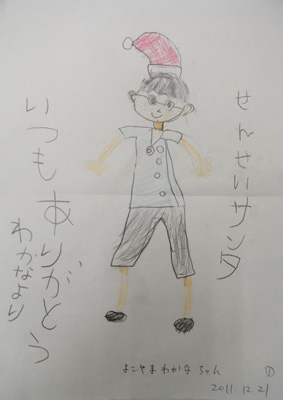 せんせいサンタ
いつもありがとう
わかなより
よこやまわかなちゃん
①
2011.12.21